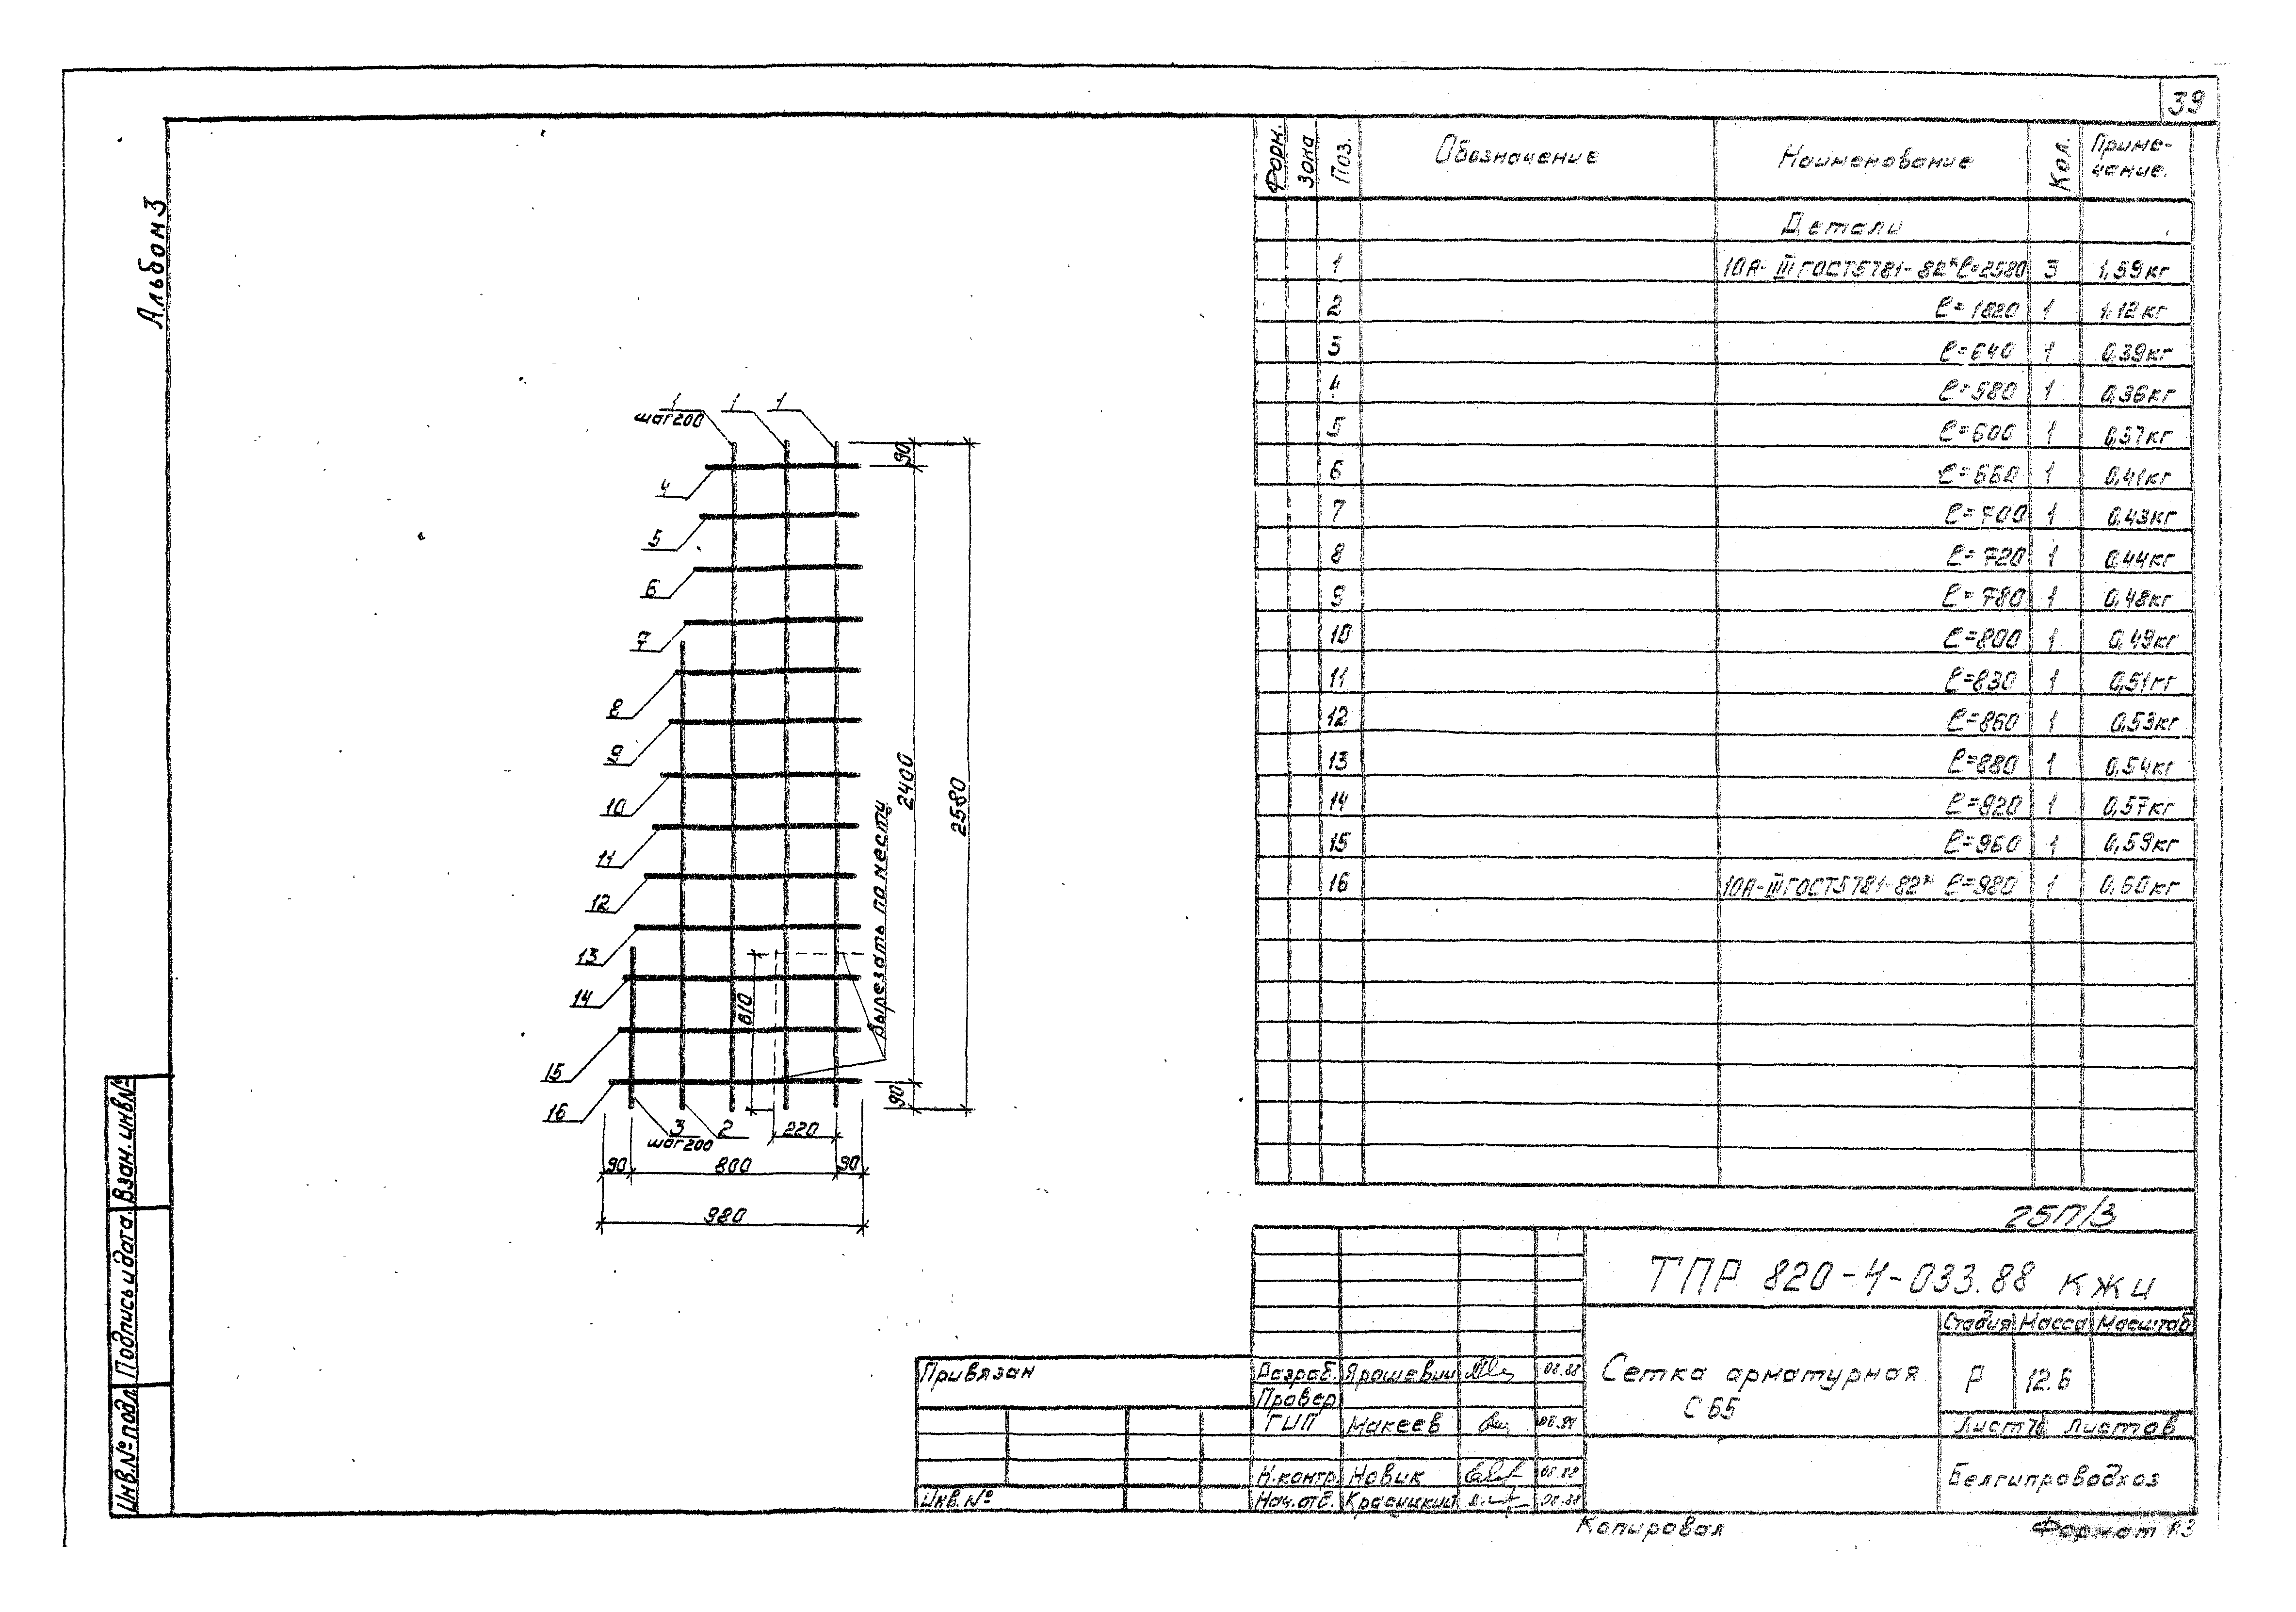 39
Альбом 3
Форм. Зона Поз. Обозначение Наименование Кол. Приме-
чание.
Детали
1 10А-III ГОСТ5781-82* ℓ=2580 3 1,59кг
2 ℓ=1820 1 1,12кг
3 ℓ=640 1 0,39кг
4 ℓ=580 1 0,36кг
5 ℓ=600 1 0,37кг
6 ℓ=660 1 0,41кг
7 ℓ=700 1 0,43кг
8 ℓ=720 1 0,44кг
9 ℓ=780 1 0,48кг
10 ℓ=800 1 0,49кг
11 ℓ=830 1 0,51кг
12 ℓ=860 1 0,53кг
13 ℓ=880 1 0,54кг
14 ℓ=920 1 0,57кг
15 ℓ=960 1 0,59кг
16 10А-III ГОСТ5781-82* ℓ=980 1 0,60кг
1 1 1
шаг200
4
5
6
7
8
9
10
11
12
13
14
15
16
90
2400
2580
90
810
Вырезать по месту
3 2 220
шаг200
90 800 90
980
25П/3
ТПР 820-4-033.88 КЖИ
Стадия Масса Масштаб
Сетка арматурная
С65
Р 12.6
Лист Листов
Белгипроводхоз
Привязан
Инв.№
Разраб. Ярошевич 08.88
Провер
ГИП Макеев 08.88
Н.контр Новик 08.88
Нач.отд. Красуцкий 08.88
Взам. инв№
Подпись и дата.
Инв.№подл.
Копировал Формат А3